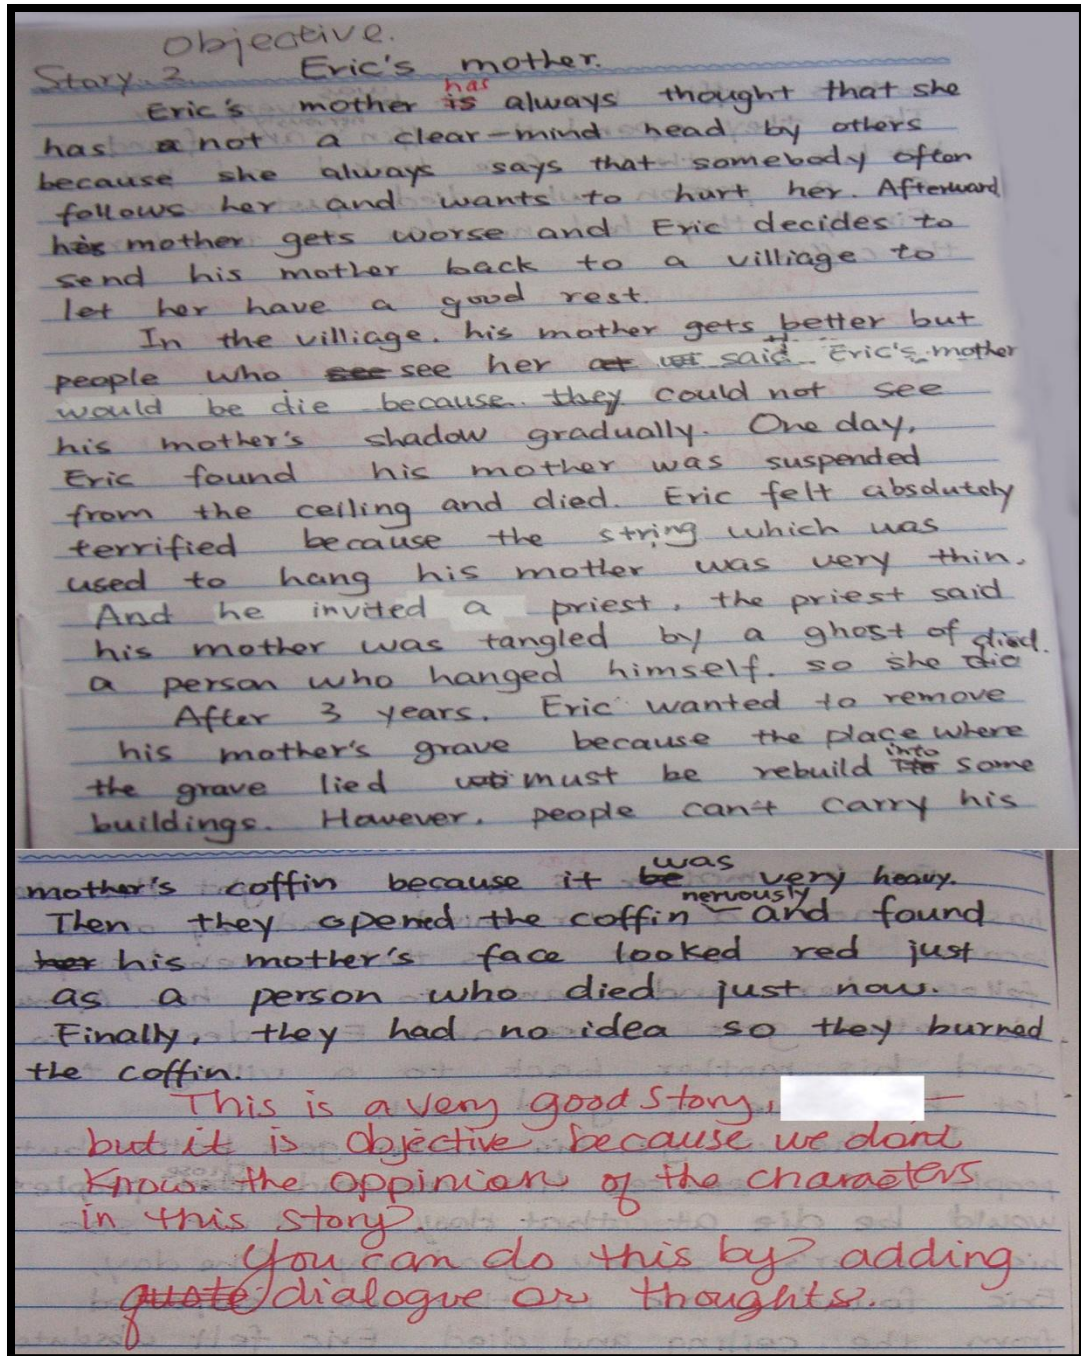 Objective.
Story 2. Eric's mother.
has
Eric's mother is always thought that she
has a not a clear-mind head by others
because she always says that somebody often
follows her and wants to hurt her. Afterward
his mother gets worse and Eric decides to
send his mother back to a villiage to
let her have a good rest.
In the villiage, his mother gets better but
people who see see her at said Eric's mother
would be die because they could not see
his mother's shadow gradually. One day,
Eric found his mother was suspended
from the ceiling and died. Eric felt absolutely
terrified because the string which was
used to hang his mother was very thin.
And he invited a priest, the priest said
his mother was tangled by a ghost of
a person who hanged himself. so she die died.
After 3 years, Eric wanted to remove
his mother's grave because the place where
into
the grave lied must be rebuild some
buildings. However, people can't carry his
was
mother's coffin because it be very heavy.
nervously
Then they opened the coffin and found
her his mother's face looked red just
as a person who died just now.
Finally, they had no idea so they burned
the coffin.
This is a very good story,
but it is objective because we dont
know the oppinion of the characters
in this story.
You can do this by adding
quote dialogue or thoughts.